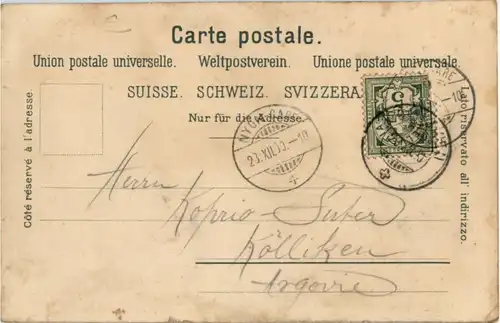 Carte postale.
Union postale universelle. Weltpostverein. Unione postale universale.
SUISSE. SCHWEIZ. SVIZZERA
Nur für die Adresse.
Côté réservé à l'adresse.
Lato riservato all' indirizzo.
5
4
Herrn
Koprio-Suter
Kölliken
Argovie